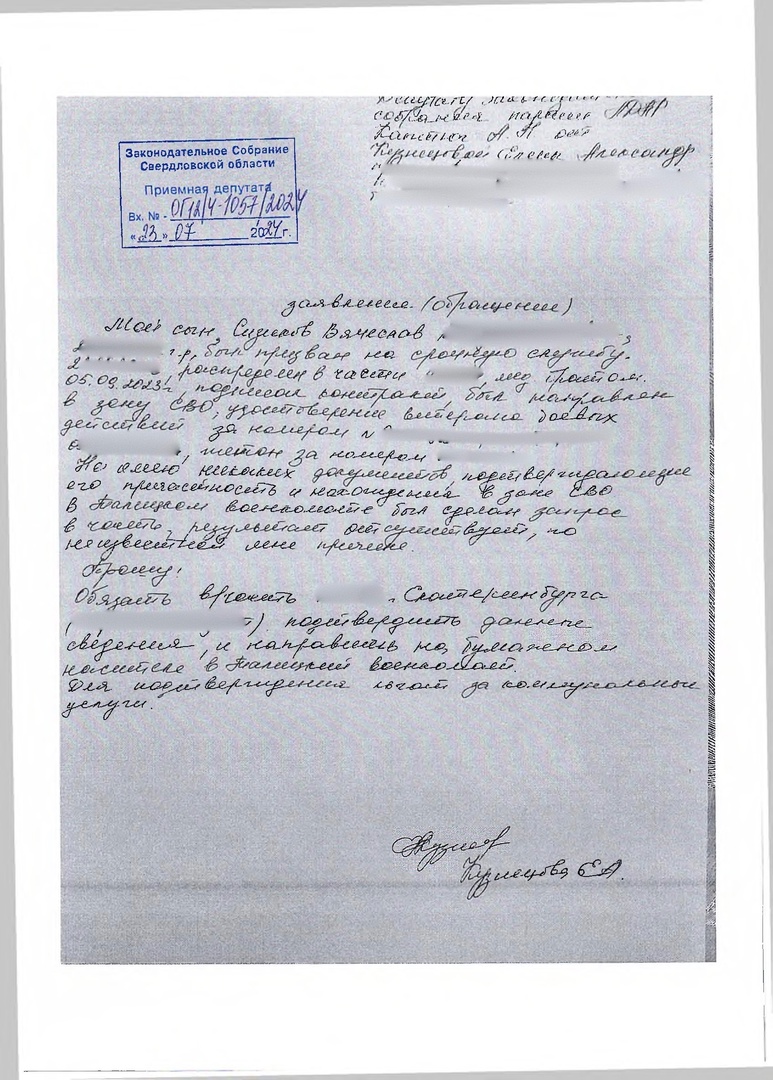 Законодательное Собрание
Свердловской области
Приемная депутата
Вх. № - ОГ12/4-1057/2024
«23» 07 2024 г.
собрания партии ЛДПР
Каптюг А Н от
Кузнецовой Елены Александр
заявление. (обращение)
Мой сын, Сизиков Вячеслав
г.р, был призван на срочную службу.
распределен в части
05.09.2023г подписал контракт, был направлен
в зону СВО, удостоверение ветерана боевых
действий за номером №
, жетон за номером
Не имею никаких документов, подтверждающие
его причастность и нахождения в зоне СВО
В Талицком военкомате был сделан запрос
в часть, результат отсутствует, по
неизвестной мне причине.
Прошу!
Обязать в/часть . Екатеринбурга
( ) подтвердить данные
сведения, и направить на бумажном
носителе в Талицкий военкомат.
Для подтверждения льгот за коммунальные
услуги.
Кузнецова Е.А.